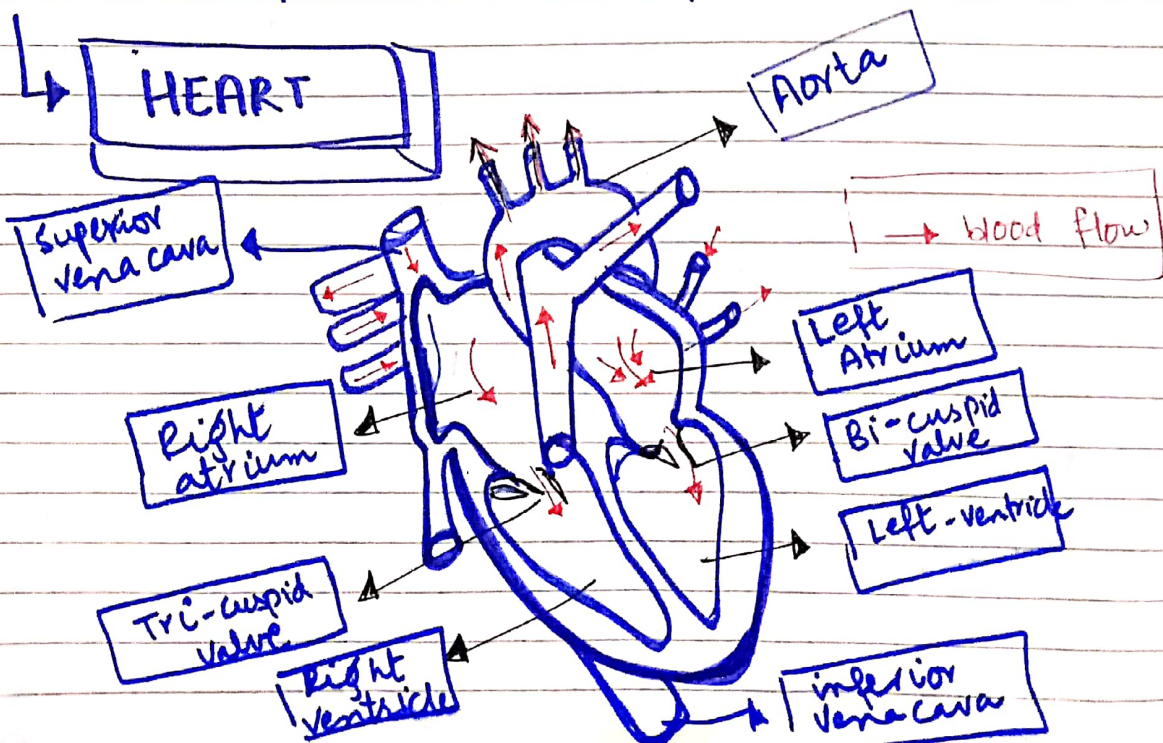 HEART
Aorta
Superior
vena cava
→ blood flow
Left
Atrium
Right
atrium
Bi-cuspid
valve
Left-ventricle
Tri-cuspid
valve
Right
ventricle
inferior
vena cava